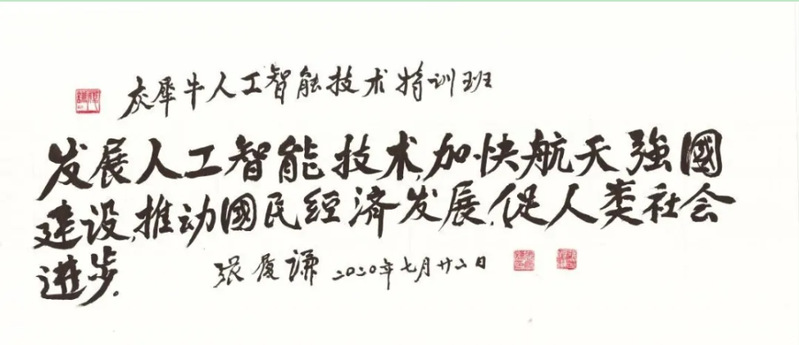 灰犀牛人工智能技术特训班
发展人工智能技术,加快航天強國
建设,推动國民經濟发展,促人类社会
进步.
张履谦 2020年七月廿六日